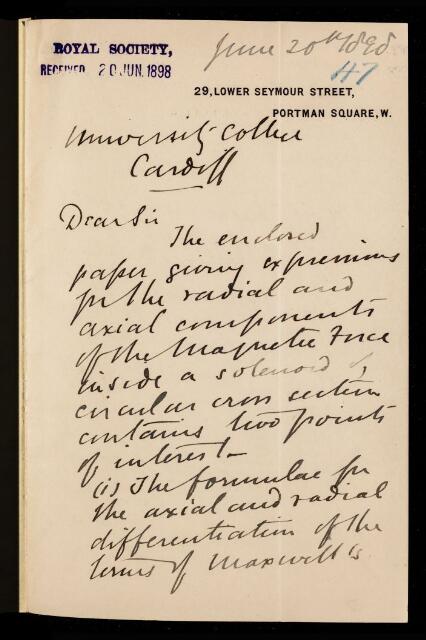 ROYAL SOCIETY,
RECEIVED 20 JUN. 1898
June 20th 1898
47
29, LOWER SEYMOUR STREET,
PORTMAN SQUARE, W.
University College
Cardiff
Dear Sir
The enclosed
paper giving expressions
for the radial and
axial components
of the Magnetic Force
inside a solenoid of
circular cross section
contains two points
of interest—
(i) The formulae for
the axial and radial
differentiation of the
terms of Maxwell's